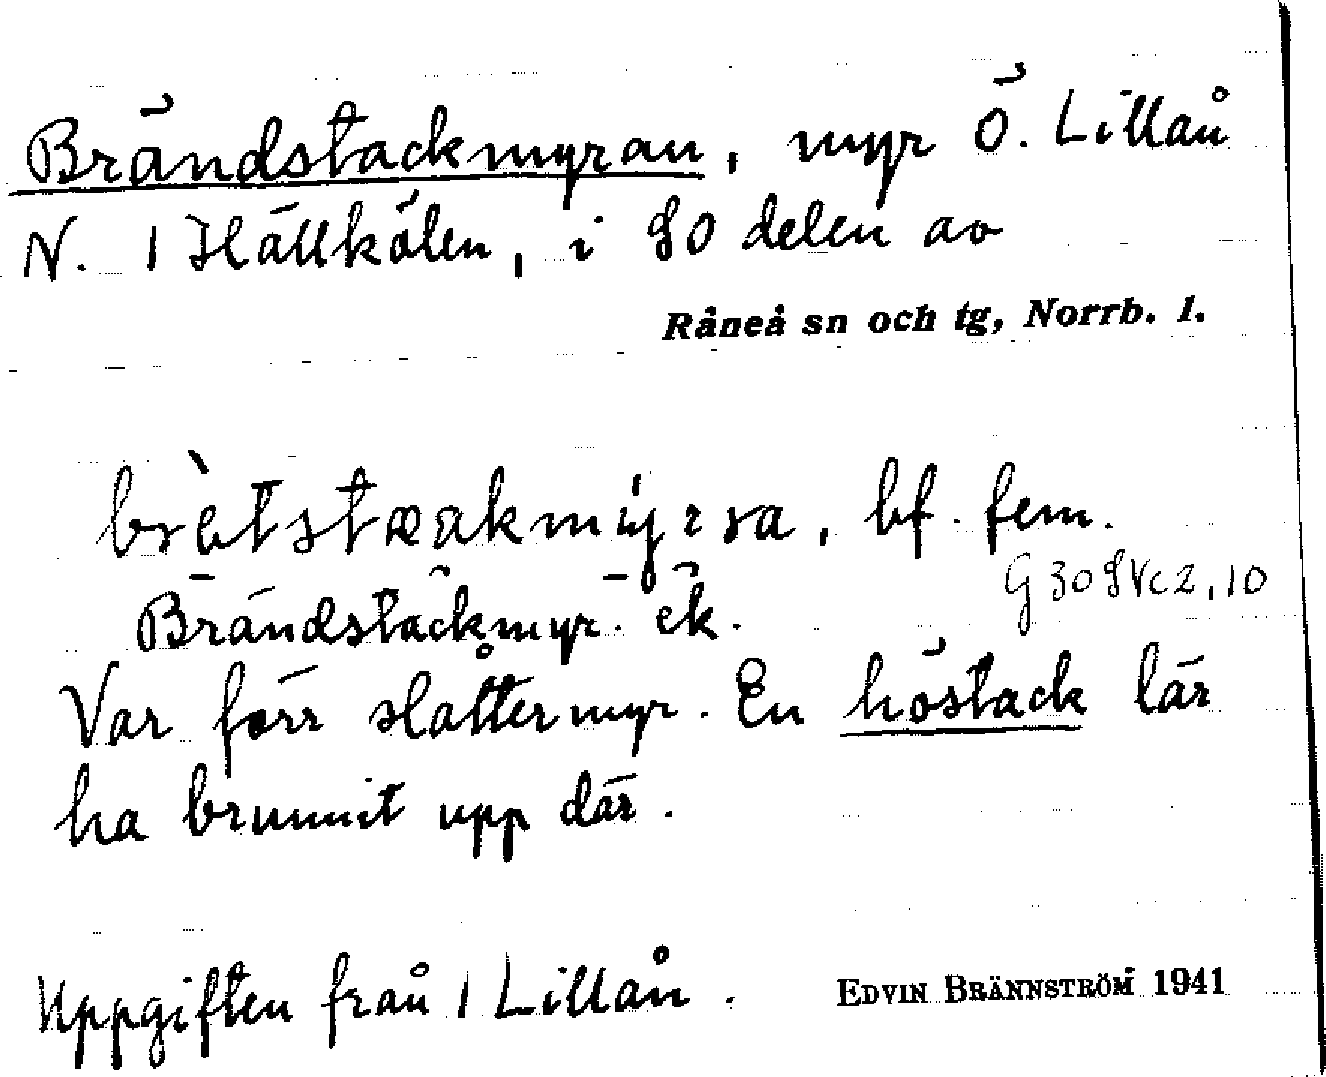 Brändstackmyran, myr Ö. Lillån
N. 1 Hällkölen, i SO delen av
Råneå sn och tg, Norrb. l.
bf. fem.
G 30 SVc2,10
Brändstackmyr. ek.
Var förr slåttermyr. En höstack lär
ha brunnit upp där.
Uppgiften från 1 Lillån.
EDVIN BRÄNNSTRÖM 1941